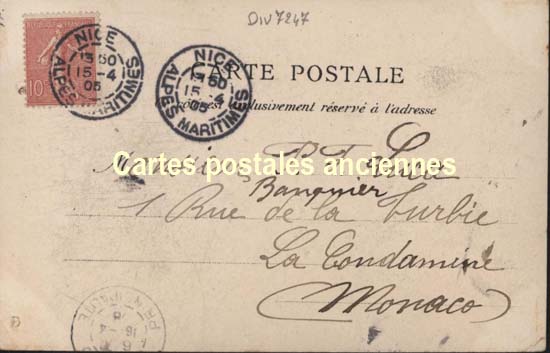 DIV7247
NICE
13 50
15 - 4
05
ALPES MARITIMES
10
NICE
50
15 - 4
05
ALPES MARITIMES
CARTE POSTALE
exclusivement réservé à l'adresse
Cartes postales anciennes
Banquier
1 Rue de la Turbie
La Condamine
Monaco
PRINCIPAUTÉ